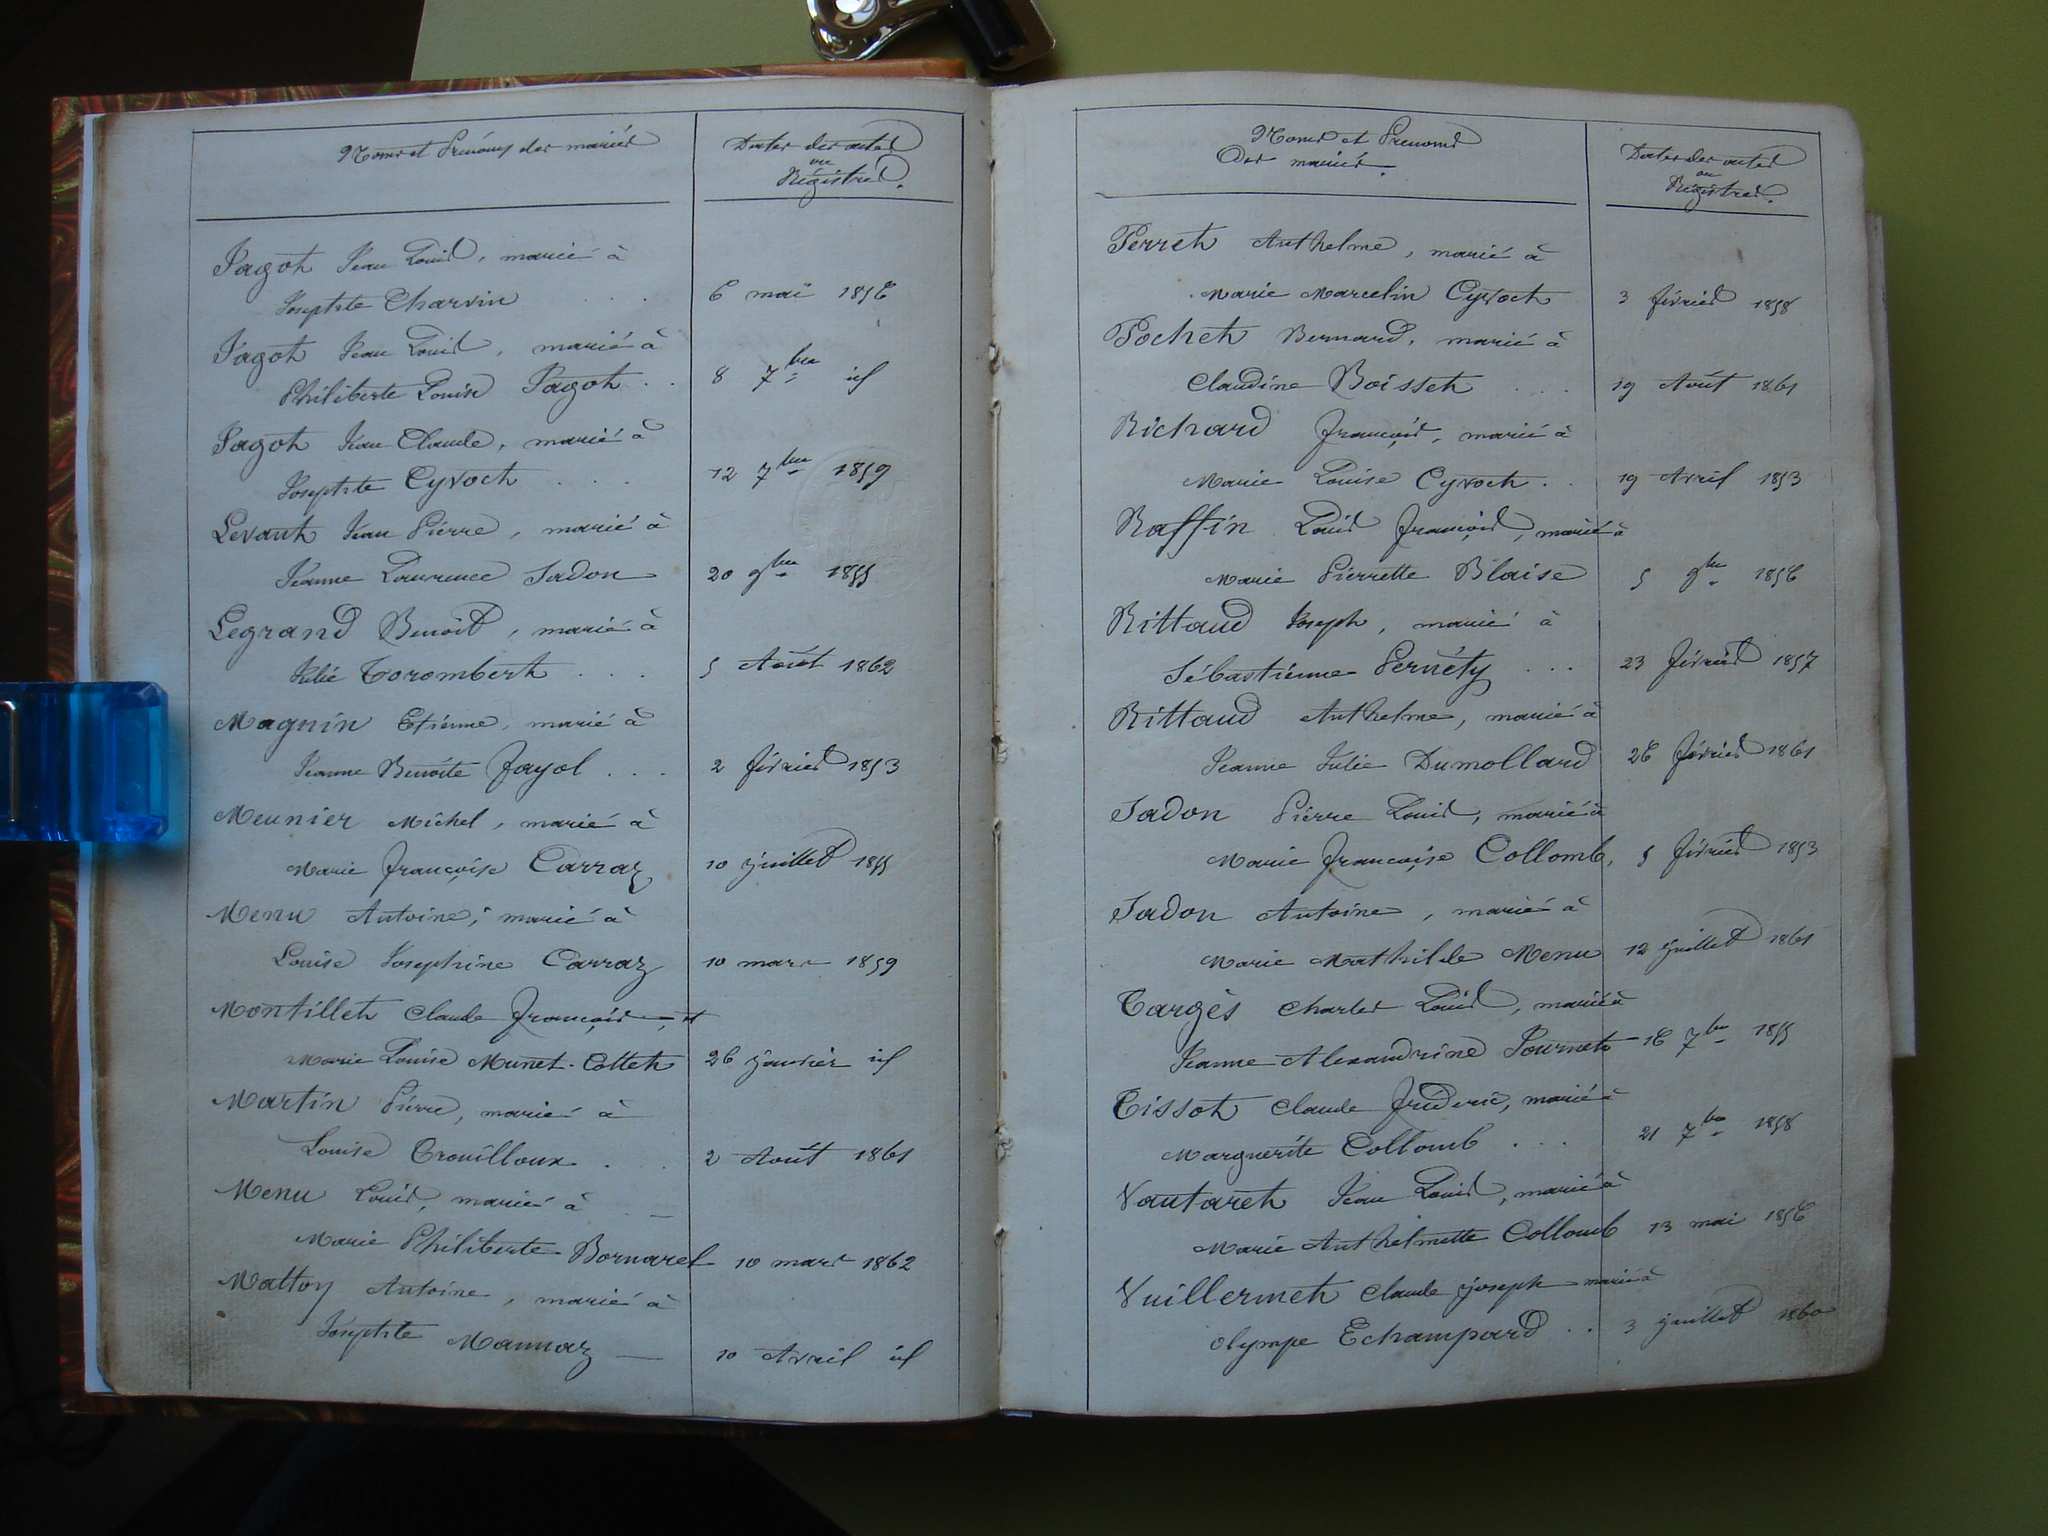 Noms et Prénoms des mariés
Dates des actes
au
Régistres.
Jagot Jean Louis, marié à
Josephte Charvin . . . 6 mai 1856
Jagot Jean Louis, marié à
Philiberte Louise Jagot . . 8 7bre id
Jagot Jean Claude, marié à
Josephte Cyvoct . . . 12 7bre 1859
Levant Jean Pierre, marié à
Jeanne Laurence Jadon 20 9bre 1855
Legrand Benoît, marié à
Julie Corombert . . . 5 Août 1862
Magnin Etiénne, marié à
Jeanne Benoîte Fayol . . . 2 février 1853
Meunier Michel, marié à
Marie Françoise Carraz 10 juillet 1855
Menu Antoine, marié à
Louise Josephine Carraz 10 mars 1859
Montillet Claude François, et
Marie Louise Munet-Cottet 26 janvier id
Martin Pierre, marié à
Louise Trouilloux . . . 2 Août 1861
Menu Louis, marié à
Marie Philiberte Bornarel 10 mars 1862
Antoine, marié à
Josephte Mannaz 10 Avril id
Noms et Prenoms
Des mariés.
Dates des actes
au
Régistres.
Perret Anthelme, marié à
Marie Marcelin Cyvoct 3 février 1858
Pochet Bernard, marié à
Claudine Boisset . . . 19 Août 1861
Richard François, marié à
Marie Louise Cyvoct . . 19 Avril 1853
Raffin Louis François, marié à
Marie Pierrette Blaise 5 9bre 1856
Rittaud Joseph, marié à
Sébastiénne Pernéty . . . 23 février 1857
Rittaud Anthelme, marié à
Jeanne Julie Dumollard 26 février 1861
Jadon Pierre Louis, marié à
Marie Françoise Collomb, 5 février 1853
Jadon Antoine, marié à
Marie Mathilde Menu 12 juillet 1861
Cargès Charles Louis, marié à
Jeanne Alexandrine Pournet 16 7bre 1855
Tissot Claude Fréderic, marié à
Marguerite Collomb . . . 21 7bre 1858
Vautaret Jean Louis, marié à
Marie Anthelmette Collomb 13 mai 1856
Vuillermet Claude joseph marié à
olympe Echampard . . 3 juillet 1860